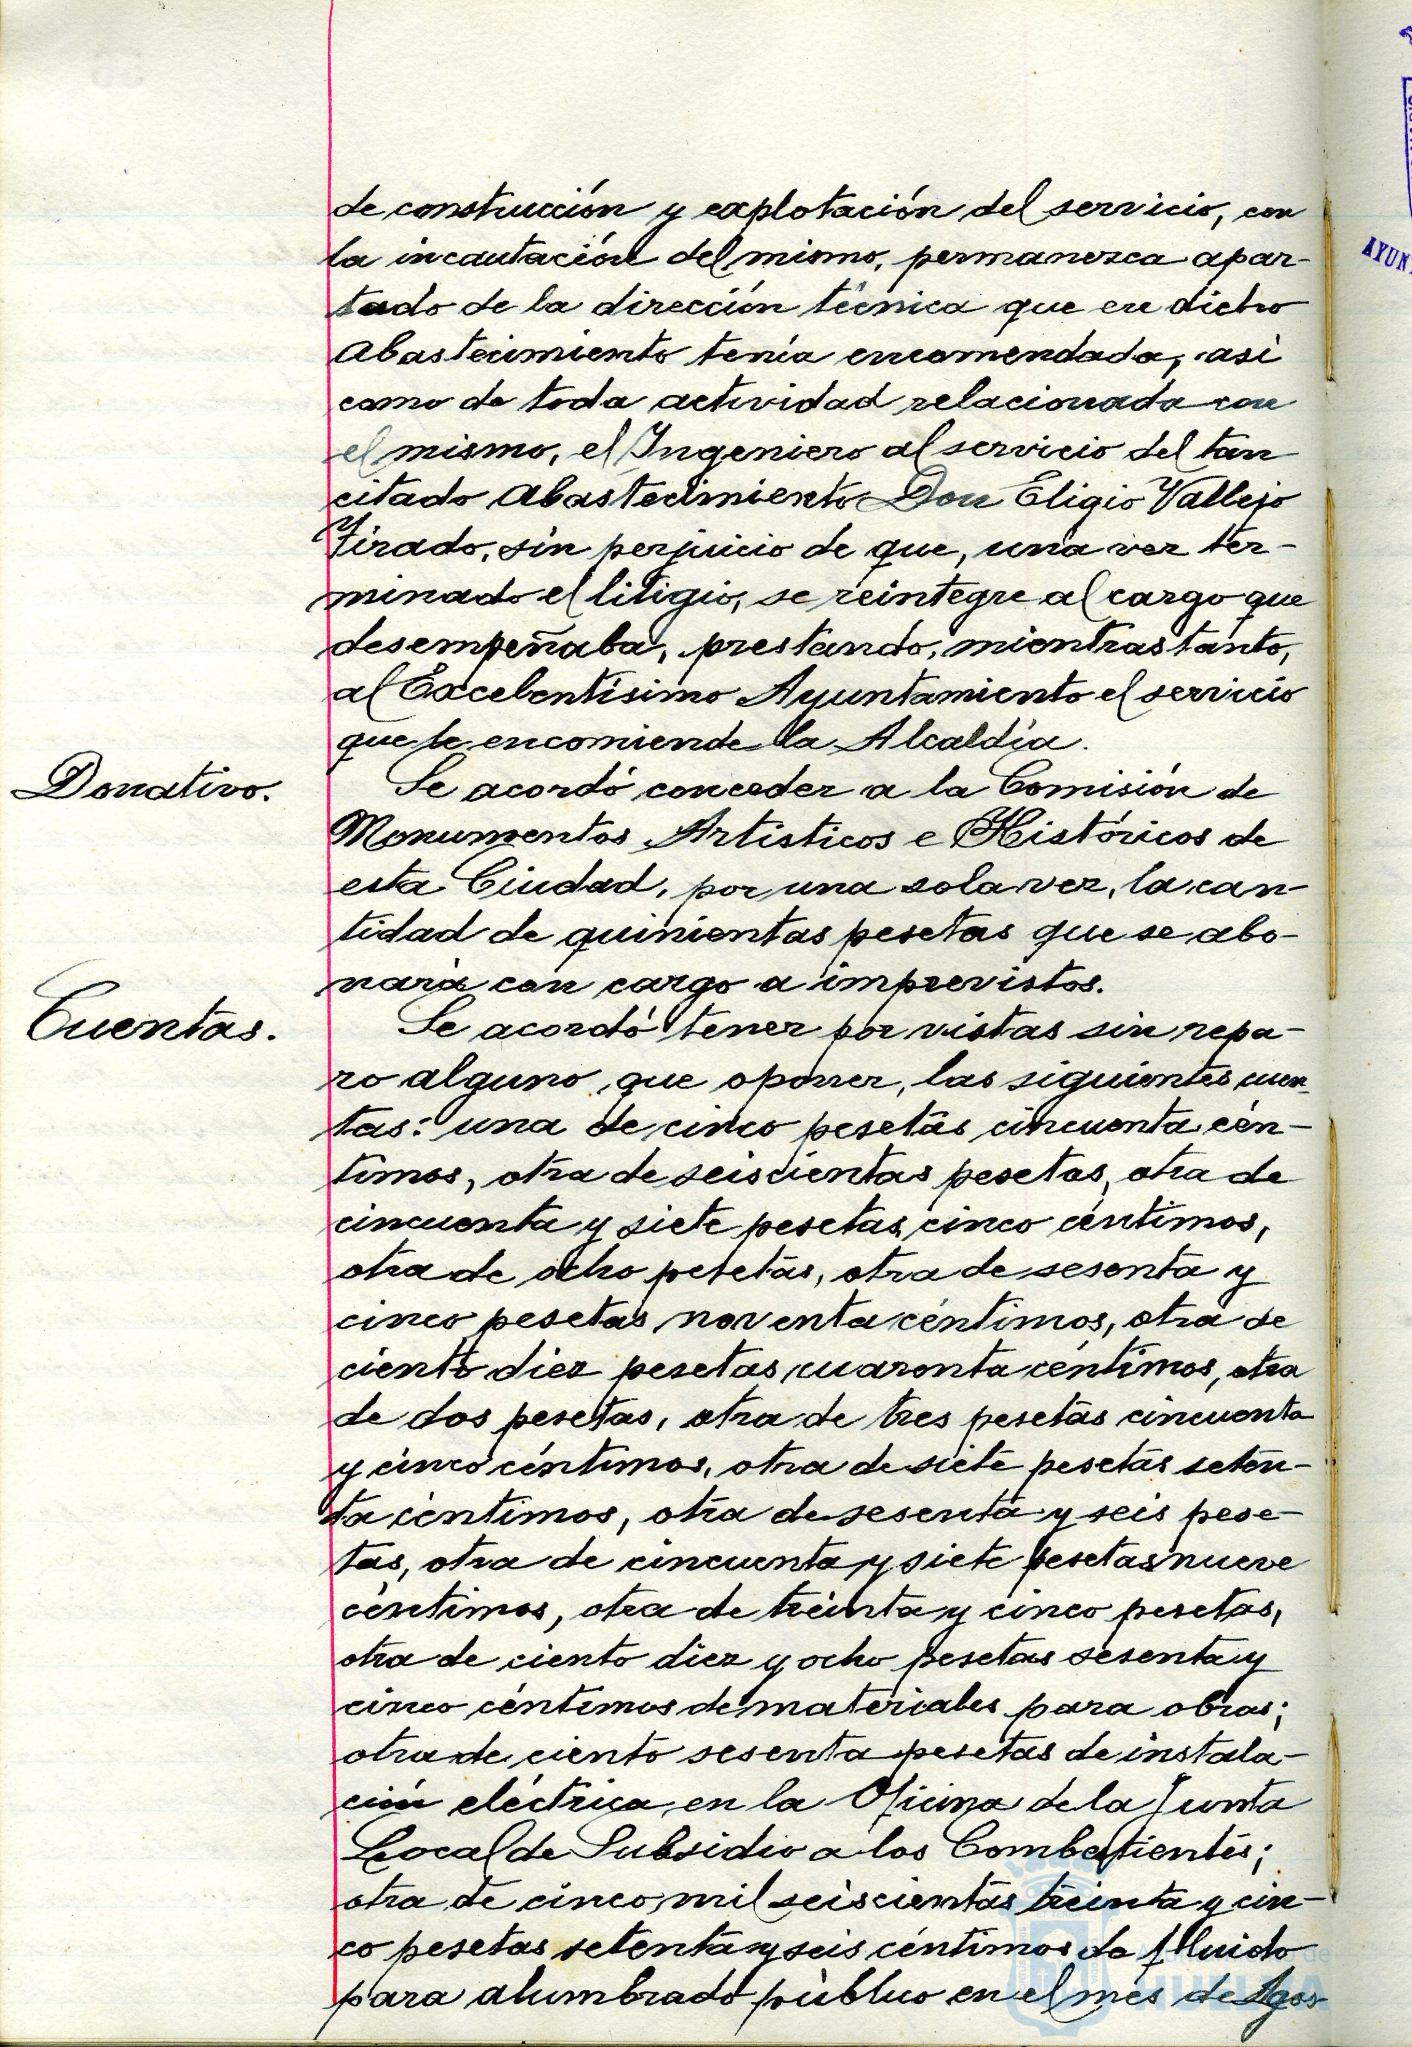 de construcción y explotación del servicio, con
la incautación del mismo, permanezca apar-
tado de la dirección técnica que en dicho
Abastecimiento tenía encomendada, asi
como de toda actividad relacionada con
el mismo, el Ingeniero al servicio del tan
citado Abastecimiento Don Eligio Vallejo
Tirado, sin perjuicio de que, una vez ter-
minado el litigio, se reintegre al cargo que
desempeñaba, prestando, mientras tanto,
al Excelentísimo Ayuntamiento el servicio
que le encomiende la Alcaldía.
Donativo.
Se acordó conceder a la Comisión de
Monumentos Artisticos e Históricos de
esta Ciudad, por una sola vez, la can-
tidad de quinientas pesetas que se abo-
nará con cargo a imprevistos.
Cuentas.
Se acordó tener por vistas sin repa-
ro alguno que oponer, las siguientes cuen-
tas: una de cinco pesetas cincuenta cén-
timos, otra de seiscientas pesetas, otra de
cincuenta y siete pesetas cinco céntimos,
otra de ocho pesetas, otra de sesenta y
cinco pesetas noventa céntimos, otra de
ciento diez pesetas cuarenta céntimos, otra
de dos pesetas, otra de tres pesetas cincuenta
y cinco céntimos, otra de siete pesetas seten-
ta céntimos, otra de sesenta y seis pese-
tas, otra de cincuenta y siete pesetas nueve
céntimos, otra de treinta y cinco pesetas,
otra de ciento diez y ocho pesetas sesenta y
cinco céntimos de materiales para obras;
otra de ciento sesenta pesetas de instala-
ción eléctrica en la Oficina de la Junta
Local de Subsidio a los Combatientes;
otra de cinco mil seiscientas treinta y cin-
co pesetas setenta y seis céntimos de flluido
para alumbrado público en el mes de Agos
AYUN
HUELVA